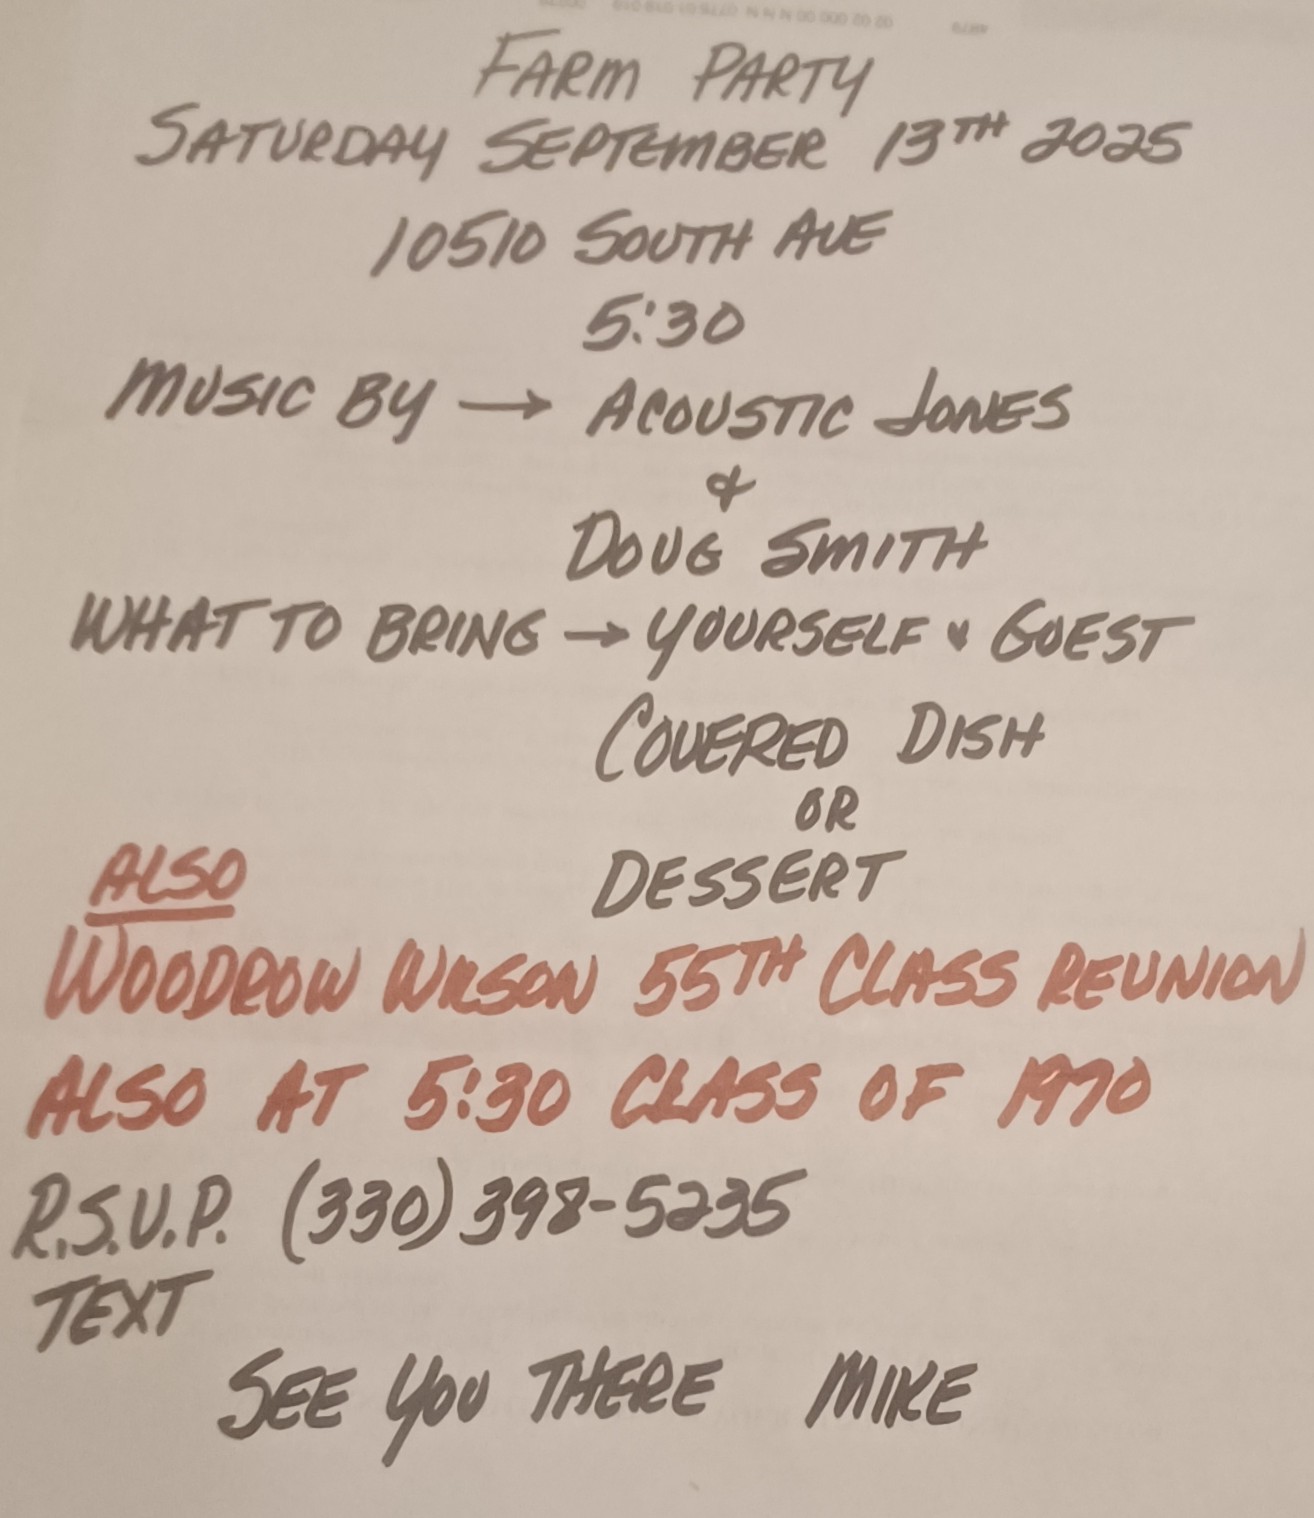 FARM PARTY
SATURDAY SEPTEMBER 13TH 2025
10510 SOUTH AVE
5:30
MUSIC BY → ACOUSTIC JONES
&
DOUG SMITH
WHAT TO BRING → YOURSELF & GUEST
COVERED DISH
OR
DESSERT
ALSO
WOODROW WILSON 55TH CLASS REUNION
ALSO AT 5:30 CLASS OF 1970
R.S.V.P. (330) 398-5235
TEXT
SEE YOU THERE MIKE